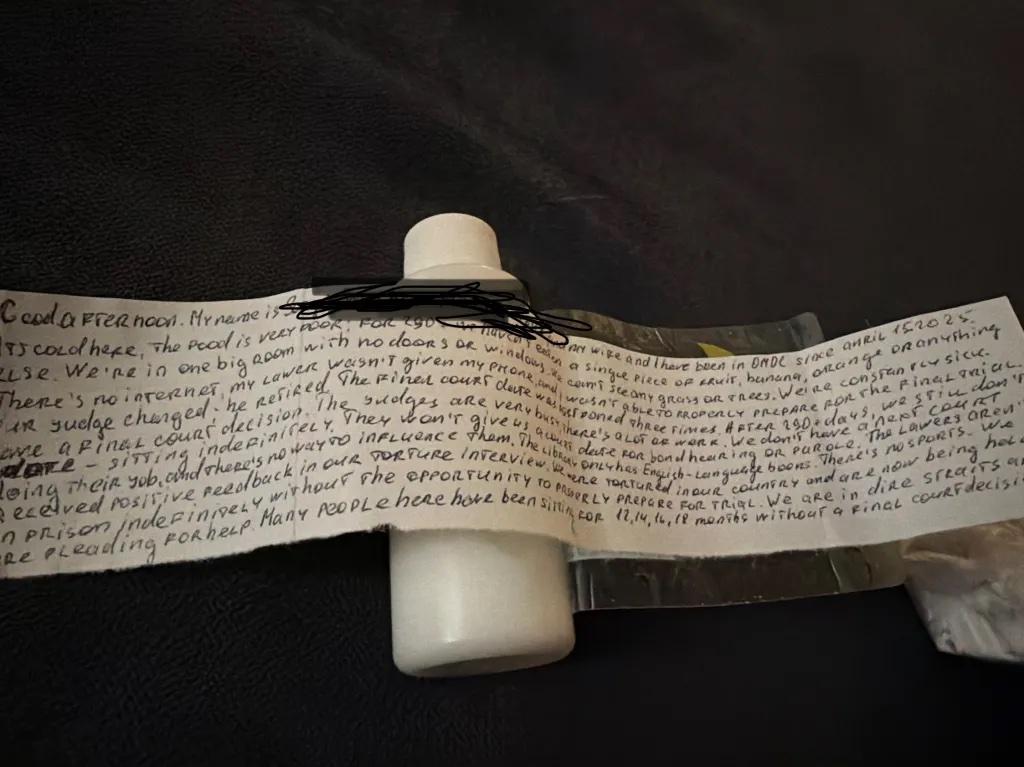 Good afternoon. My name is my wife and I have been in OMDC since april 15 2025.
It's cold here, the food is very poor. For 290 haven't eaten a single piece of fruit, banana, orange or anything
else. We're in one big room with no doors or windows. We can't see any grass or trees. We're constantly sick.
There's no internet, my lawer wasn't given my phone, and wasn't able to properly prepare for the final trial.
ur judge changed - he retired. The final court date was postponed three times. After 290+ days, we still don't
ave a final court decision. The judges are very busy, there's a lot of work. We don't have a next court
date - sitting indefinitely. They won't give us a court date for bond hearing or parole. The lawers aren't
doing their job, and there's no way to influence them. The library only has English-language books. There's no sports. We
received positive feedback in our torture interview. We were tortured in our country and are now being hel
n prison indefinitely without the opportunity to properly prepare for trial. We are in dire straits an
re pleading for help. Many people here have been sitting for 12, 14, 14, 18 months without a final court decisi